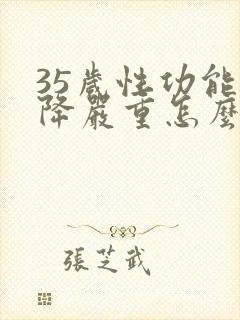 35歲性功能
降嚴重怎麼
張芝武